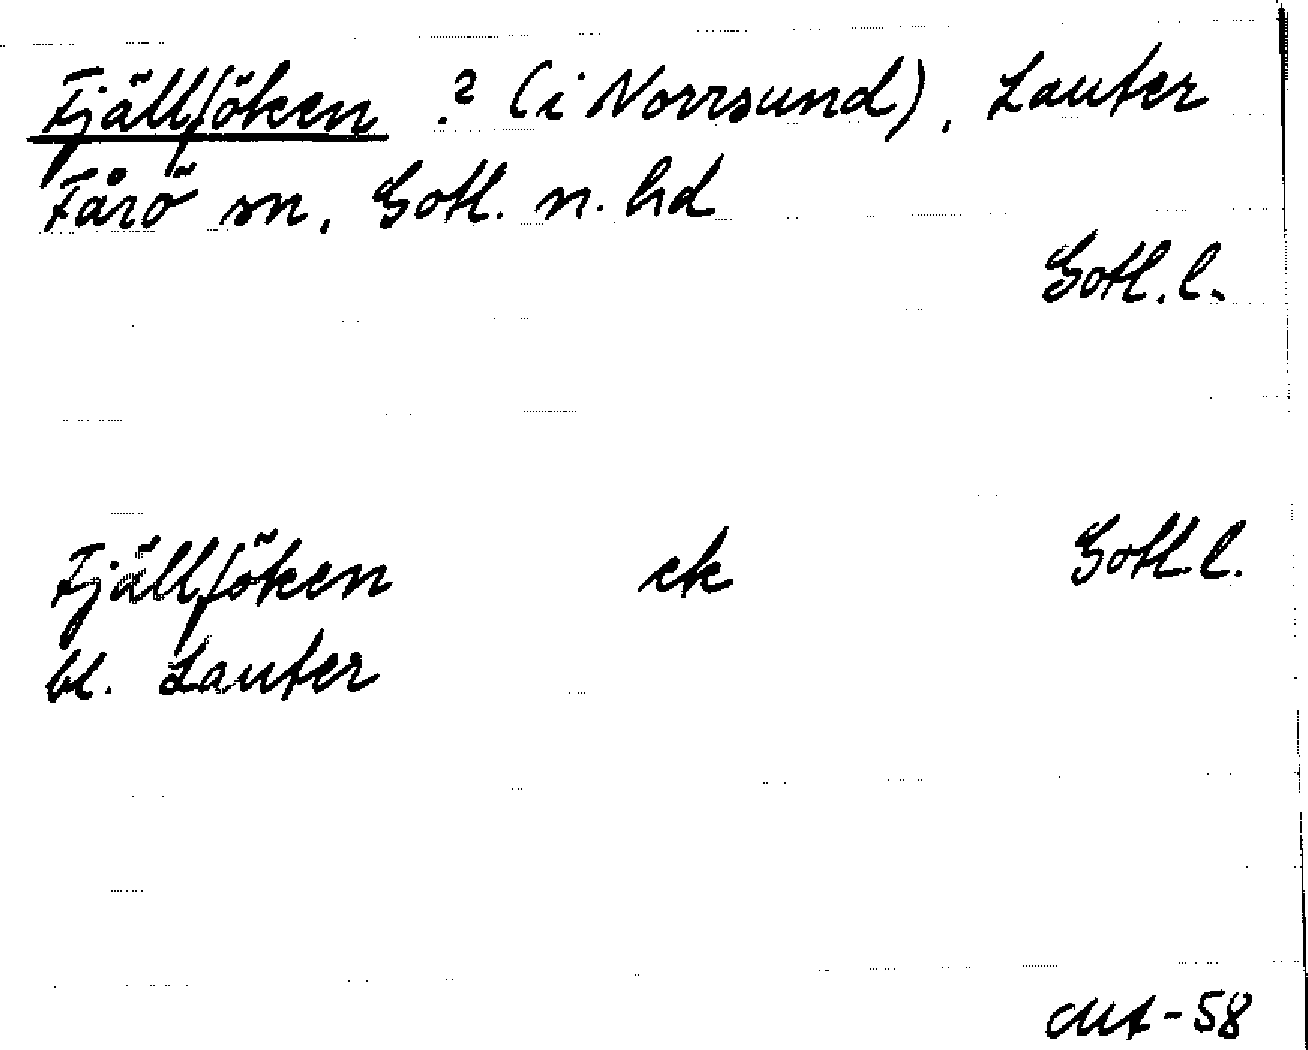 Fjällföken ? (i Norrsund), Lauter
Fårö sn, Gotl. n. hd
Gotl. l.
Fjällföken ek Gotl. l.
bl. Lauter
-58